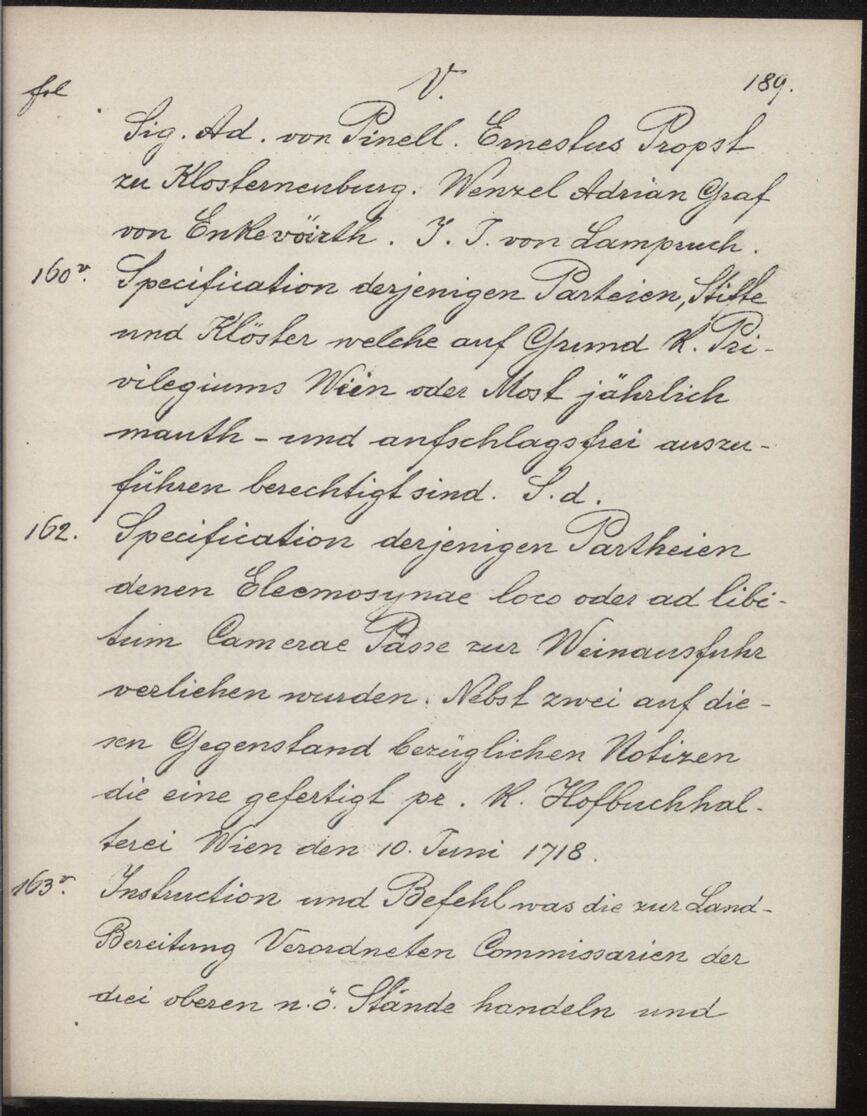 fol V. 189.
Sig. Ad. von Pinell. Ernestus Propst
zu Klosterneuburg. Wenzel Adrian Graf
von Enkevöirth. J. J. von Lampruch.
160v. Specification derjenigen Parteien, Stifte
und Klöster welche auf Grund K. Pri-
vilegiums Wein oder Most jährlich
mauth- und aufschlagsfrei auszu-
führen berechtigt sind. S. d.
162. Specification derjenigen Partheien
denen Eleemosynae loco oder ad libi-
tum Camerae Pässe zur Weinausfuhr
verliehen wurden. Nebst zwei auf die-
sen Gegenstand bezüglichen Notizen
die eine gefertigt pr. K. Hofbuchhal-
terei Wien den 10. Juni 1718.
163v. Instruction und Befehl was die zur Land-
Bereitung Verordneten Commissarien der
drei oberen n.ö. Stände handeln und